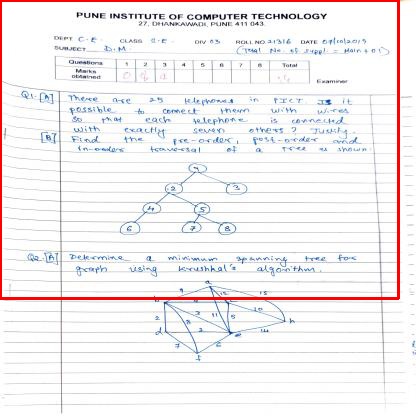 PUNE INSTITUTE OF COMPUTER TECHNOLOGY
27, DHANKAWADI, PUNE 411 043.
DEPT C.E. CLASS S.E. DIV 03 ROLL NO. 21316 DATE
SUBJECT D.M. (Total No. of suppl = Main + 01)
Questions 1 2 3 4 5 6 7 8 Total
Marks obtained Examiner
Q1. [A] There are 25 telephones in PICT. Is it
possible to connect them with wires
so that each telephone is connected
with exactly seven others? Justify.
[B] Find the pre-order, post-order and
in-order traversal of a tree is shown
1
2 3
4 5
6 7 8
Q2. [A] Determine a minimum spanning tree for
graph using krushkal's algorithm.
a
9 12 15
b c
3 10
2 8 11 5 h
2 14
d e
7 6
f